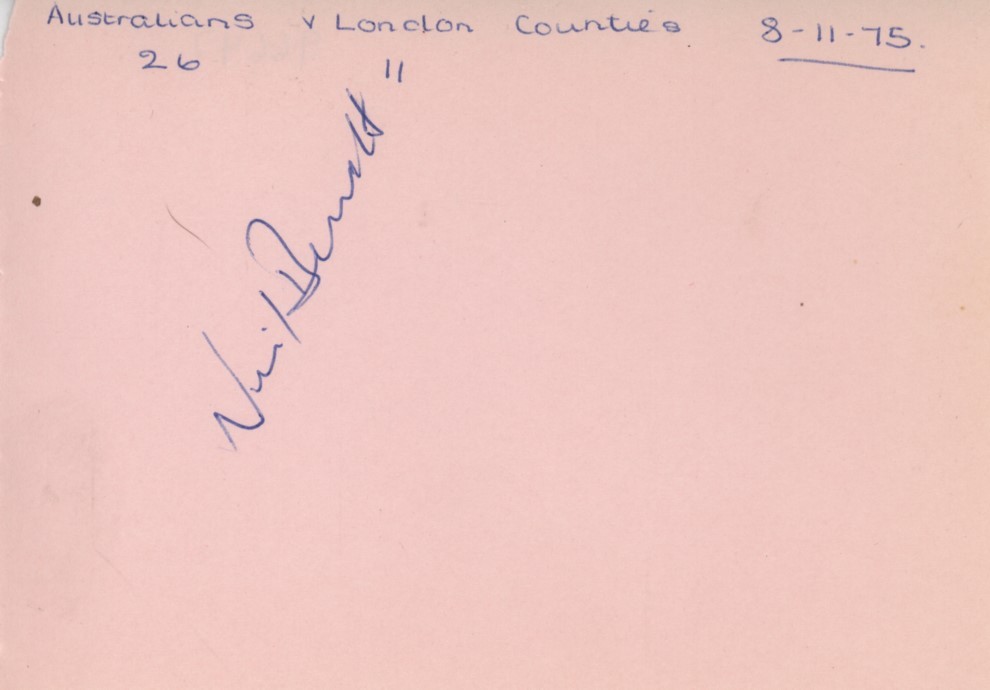 Australians v London Counties 8-11-75.
26 11
Neil Bennett